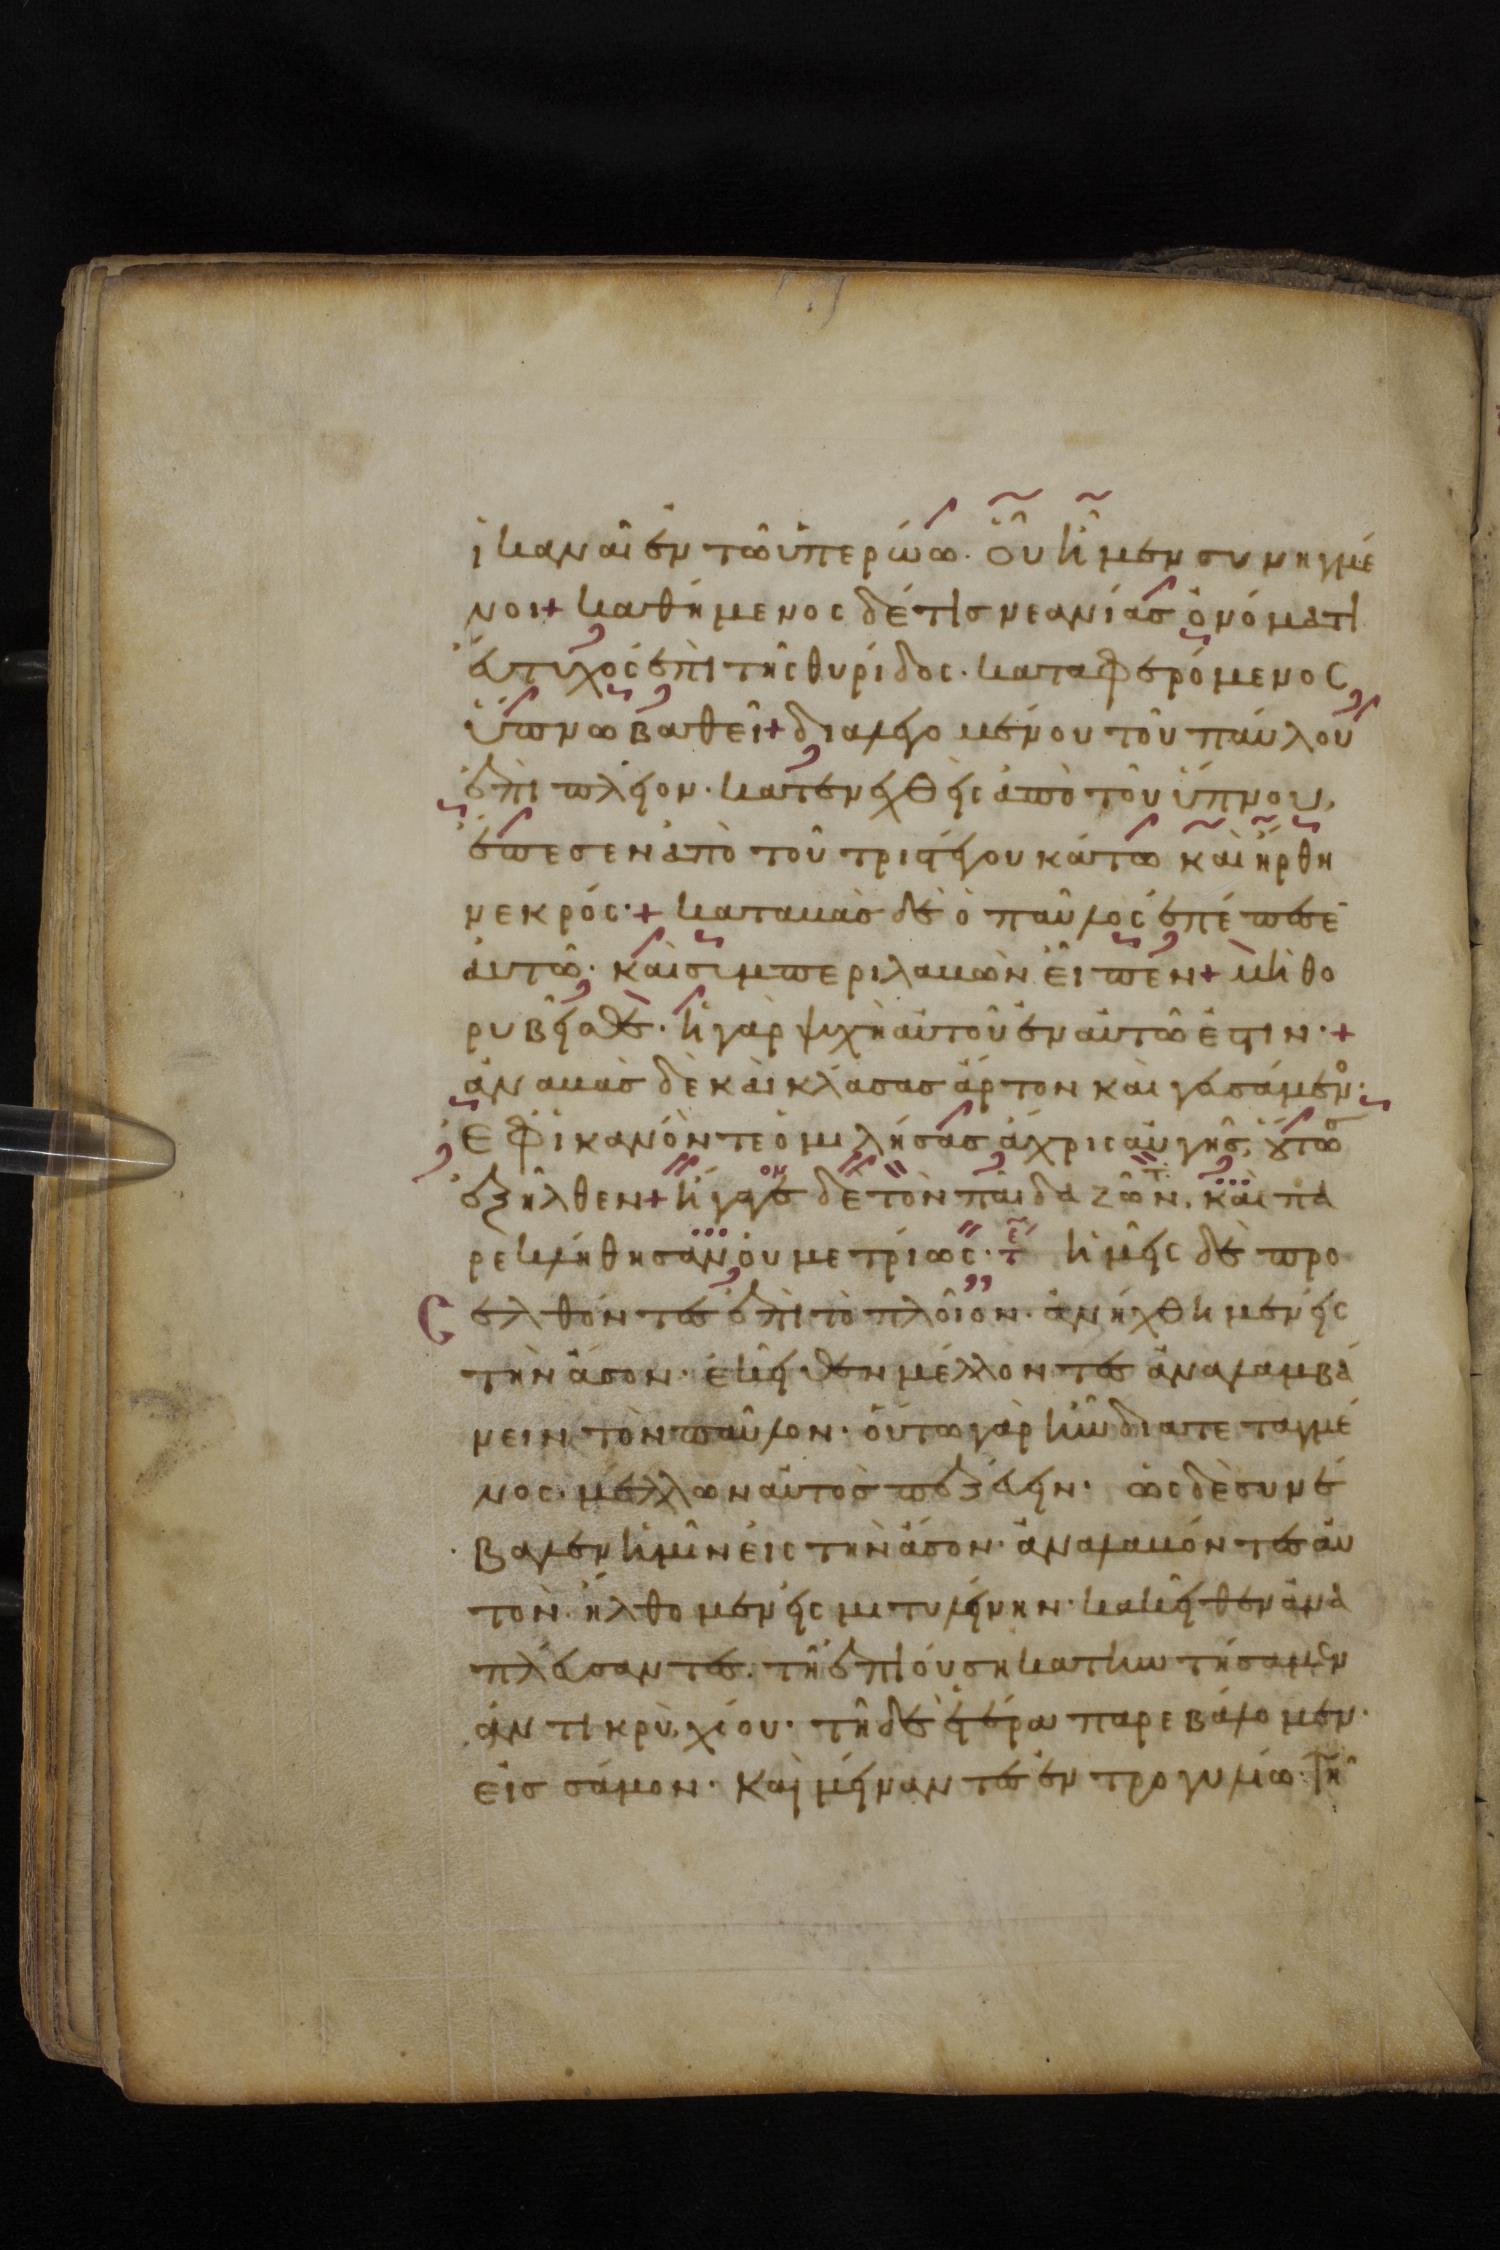 ἱκαναὶ ἐν τῶ ὑπερώω· οὗ ἦμεν συνηγμέ
νοι + καθήμενος δέ τισ νεανίασ ὀνόματι
ἔυτυχος ἐπὶ τῆς θυρίδος· καταφερόμενος
ὕπνω βαθεῖ + διαλεγομένου τοῦ παύλου
ἐπὶ πλεῖον· κατενεχθεὶς ἀπὸ τοῦ ὕπνου,
ἔπεσεν ἀπὸ τοῦ τριστέγου κάτω καὶ ἤρθη
νεκρός· + καταβὰσ δὲ ὁ παῦλος ἐπέπεσε
ἀυτῶ· καὶ συμπεριλαβὼν εἶπεν + μὴ θο
ρυβεῖσθε· ἡ γὰρ ψυχὴ ἀυτοῦ ἐν ἀυτῶ ἐστιν· +
ἀναβὰσ δὲ καὶ κλάσασ ἄρτον καὶ γευσάμενος·
ἐφ ἱκανόν τε ὁμιλήσασ ἄχρισ ἀυγῆσ, οὕτωσ
ἐξῆλθεν + ἤγαγον δὲ τὸν παῖδα ζῶντ. καὶ πα
ρεκλήθησαν ὀυ μετρίως· τε ἡμεῖς δὲ προ
ελθόντεσ ἐπὶ τὸ πλοῖον· ἀνήχθημεν εἰς
τὴν ἄσον· ἐκεῖθεν μέλλοντεσ ἀναλαμβά
νειν τὸν παῦλον· ὄυτω γὰρ ἦν διατεταγμέ
νος· μέλλων ἀυτὸσ πεζεύειν· ὡς δὲ συνέ
βαλεν ἡμῖν εἰς τὴν ἄσον· ἀναλαβόντεσ ἀυ
τὸν· ἤλθομεν εἰς μιτυλήνην· κακεῖθεν ἀπο
πλεύσαντεσ· τῆ ἐπιούση κατηντήσαμεν
ἀντικρὺ χίου· τῆ δὲ ἑτέρα παρεβάλομεν·
εἰσ σάμον· καὶ μείναντεσ ἐν τρογυλίω· τῆ